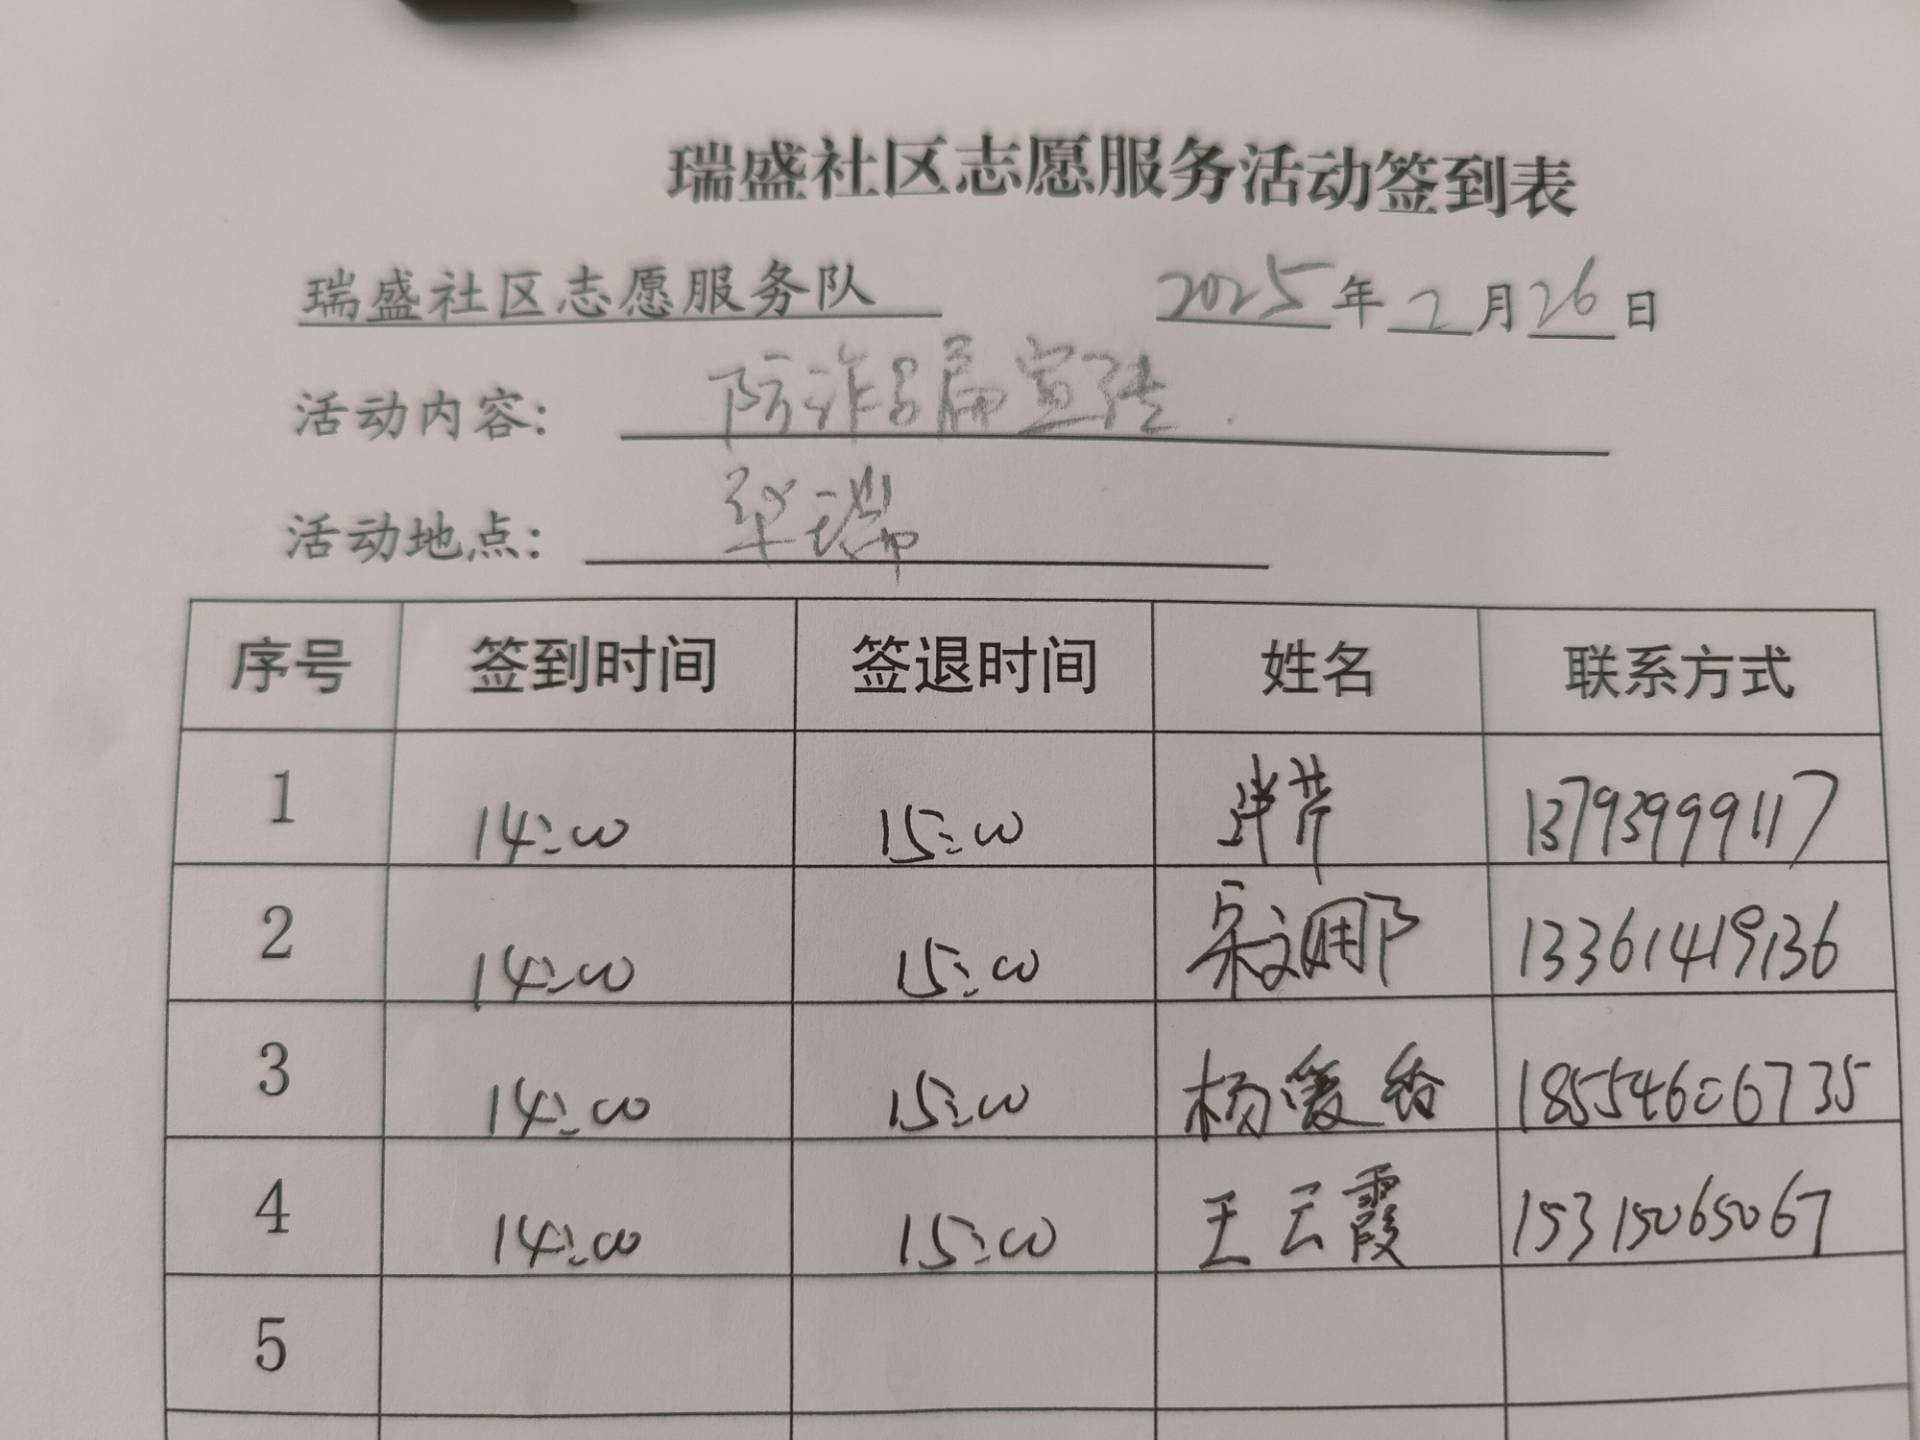 瑞盛社区志愿服务活动签到表
瑞盛社区志愿服务队 2025年2月26日
活动内容: 防诈骗宣传.
活动地点: 翠瑞
序号 签到时间 签退时间 姓名 联系方式
1 14:00 15:00 芹 13793999117
2 14:00 15:00 宋文娜 13361419136
3 14:00 15:00 杨爱香 18554606735
4 14:00 15:00 王云霞 15315065067
5